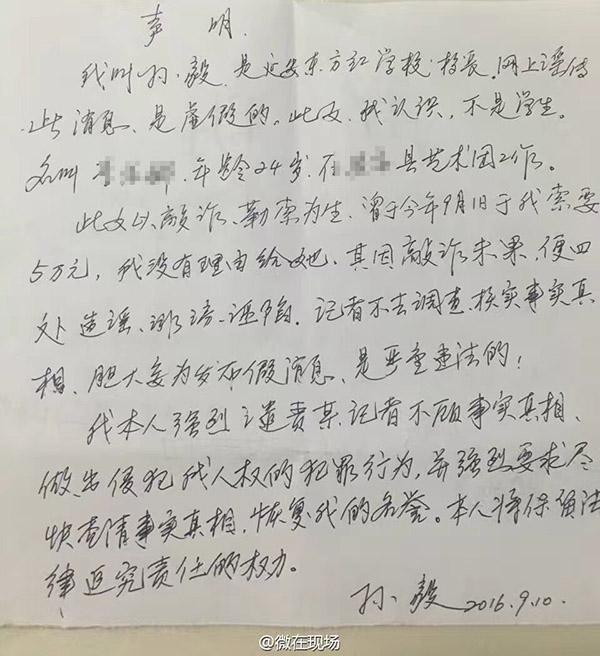 声 明
我叫孙毅，是延安东方红学校校长，网上谣传
此消息，是虚假的。此女，我认识，不是学生。
名叫 年龄24岁，在 县艺术团工作。
此女以敲诈、勒索为生，曾于今年9月1日于我索要
5万元，我没有理由给她，其因敲诈未果，便四
处造谣、诽谤、诬陷。记者不去调查、核实事实真
相，胆大妄为发布假消息，是严重违法的！
我本人强烈谴责某记者不顾事实真相，
做出侵犯我人权的犯罪行为，并强烈要求尽
快查清事实真相，恢复我的名誉。本人将保留法
律追究责任的权力。
孙毅 2016.9.10.
@微在现场